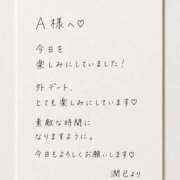 A様へ♡
今日を
楽しみにしていました!
外デート、
とても楽しみにしています♡
素敵な時間に
なりますように。
今日もよろしくお願いします♡
潤巳より